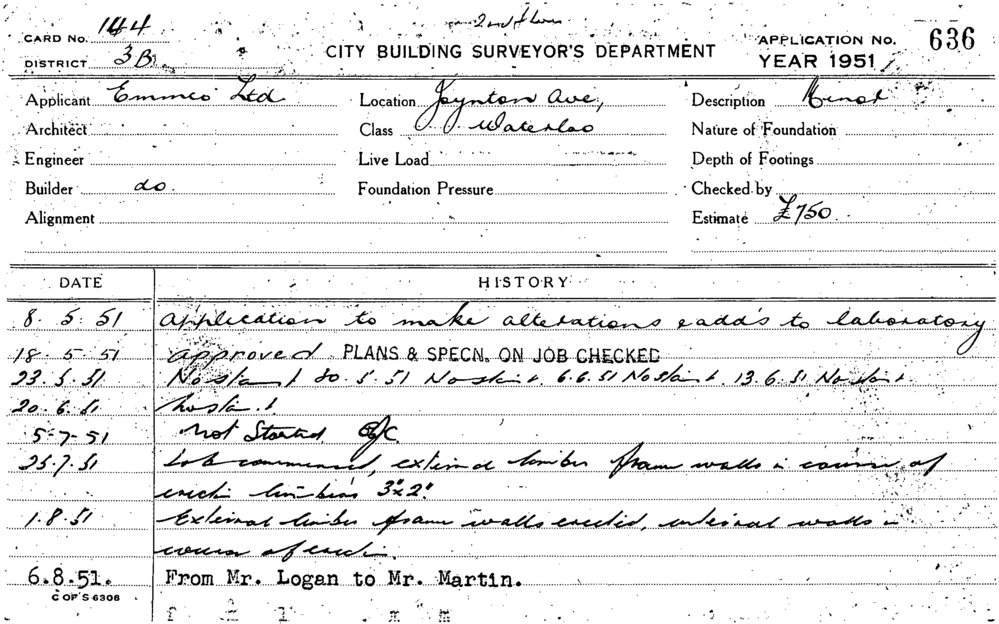 CARD No. 144
2nd floor
CITY BUILDING SURVEYOR'S DEPARTMENT
APPLICATION No. 636
DISTRICT 3B
YEAR 1951
Applicant Emmco Ltd
Location Joynton Ave,
Description Minor
Architect
Class Waterloo
Nature of Foundation
Engineer
Live Load
Depth of Footings
Builder do.
Foundation Pressure
Checked by
Alignment
Estimate £750
DATE HISTORY
8. 5. 51 Application to make alterations & add's to laboratory
18. 5. 51 approved PLANS & SPECN. ON JOB CHECKED
23. 5. 51 No start 30. 5. 51 No start. 6.6.51 No start. 13.6.51 No start.
20. 6. 51 No start
5-7-51 Not Started
25.7.51 Job commenced, external timber frame walls in course of
erectn timbers 3"x2".
1.8.51 External timber frame walls erected, internal walls in
course of erectn.
6.8.51. From Mr. Logan to Mr. Martin.
C OF S 6308